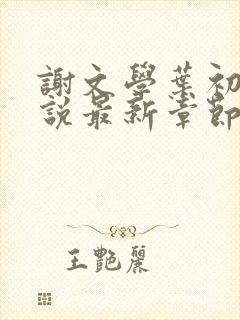 謝文學葉初
說最新章節
王艷麗